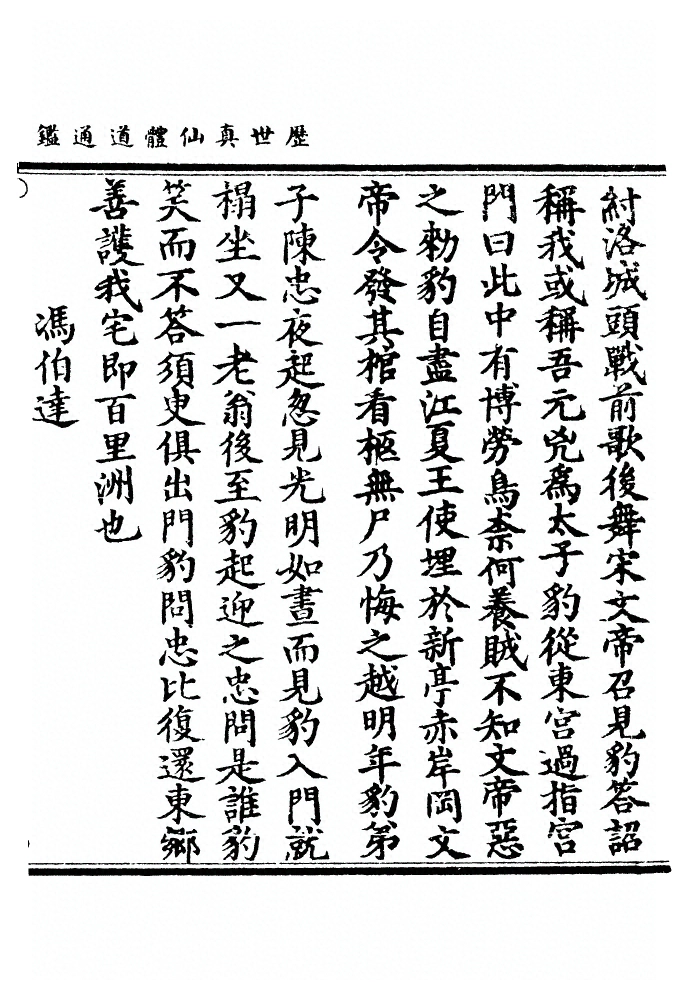 歷世真仙體道通鑑
紂洛城頭戰前歌後舞宋文帝召見豹答詔
稱我或稱吾元兇爲太子豹從東宮過指宮
門曰此中有博勞鳥柰何養賊不知文帝惡
之勑豹自盡江夏王使埋於新亭赤岸岡文
帝令發其棺看柩無尸乃悔之越明年豹弟
子陳忠夜起忽見光明如晝而見豹入門就
榻坐又一老翁後至豹起迎之忠問是誰豹
笑而不答須臾俱出門豹問忠比復還東鄉
善護我宅即百里洲也
馮伯達